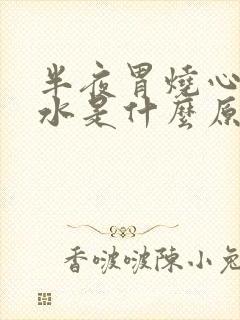 半夜胃燒心
水是什麼原
香啵啵陳小兔